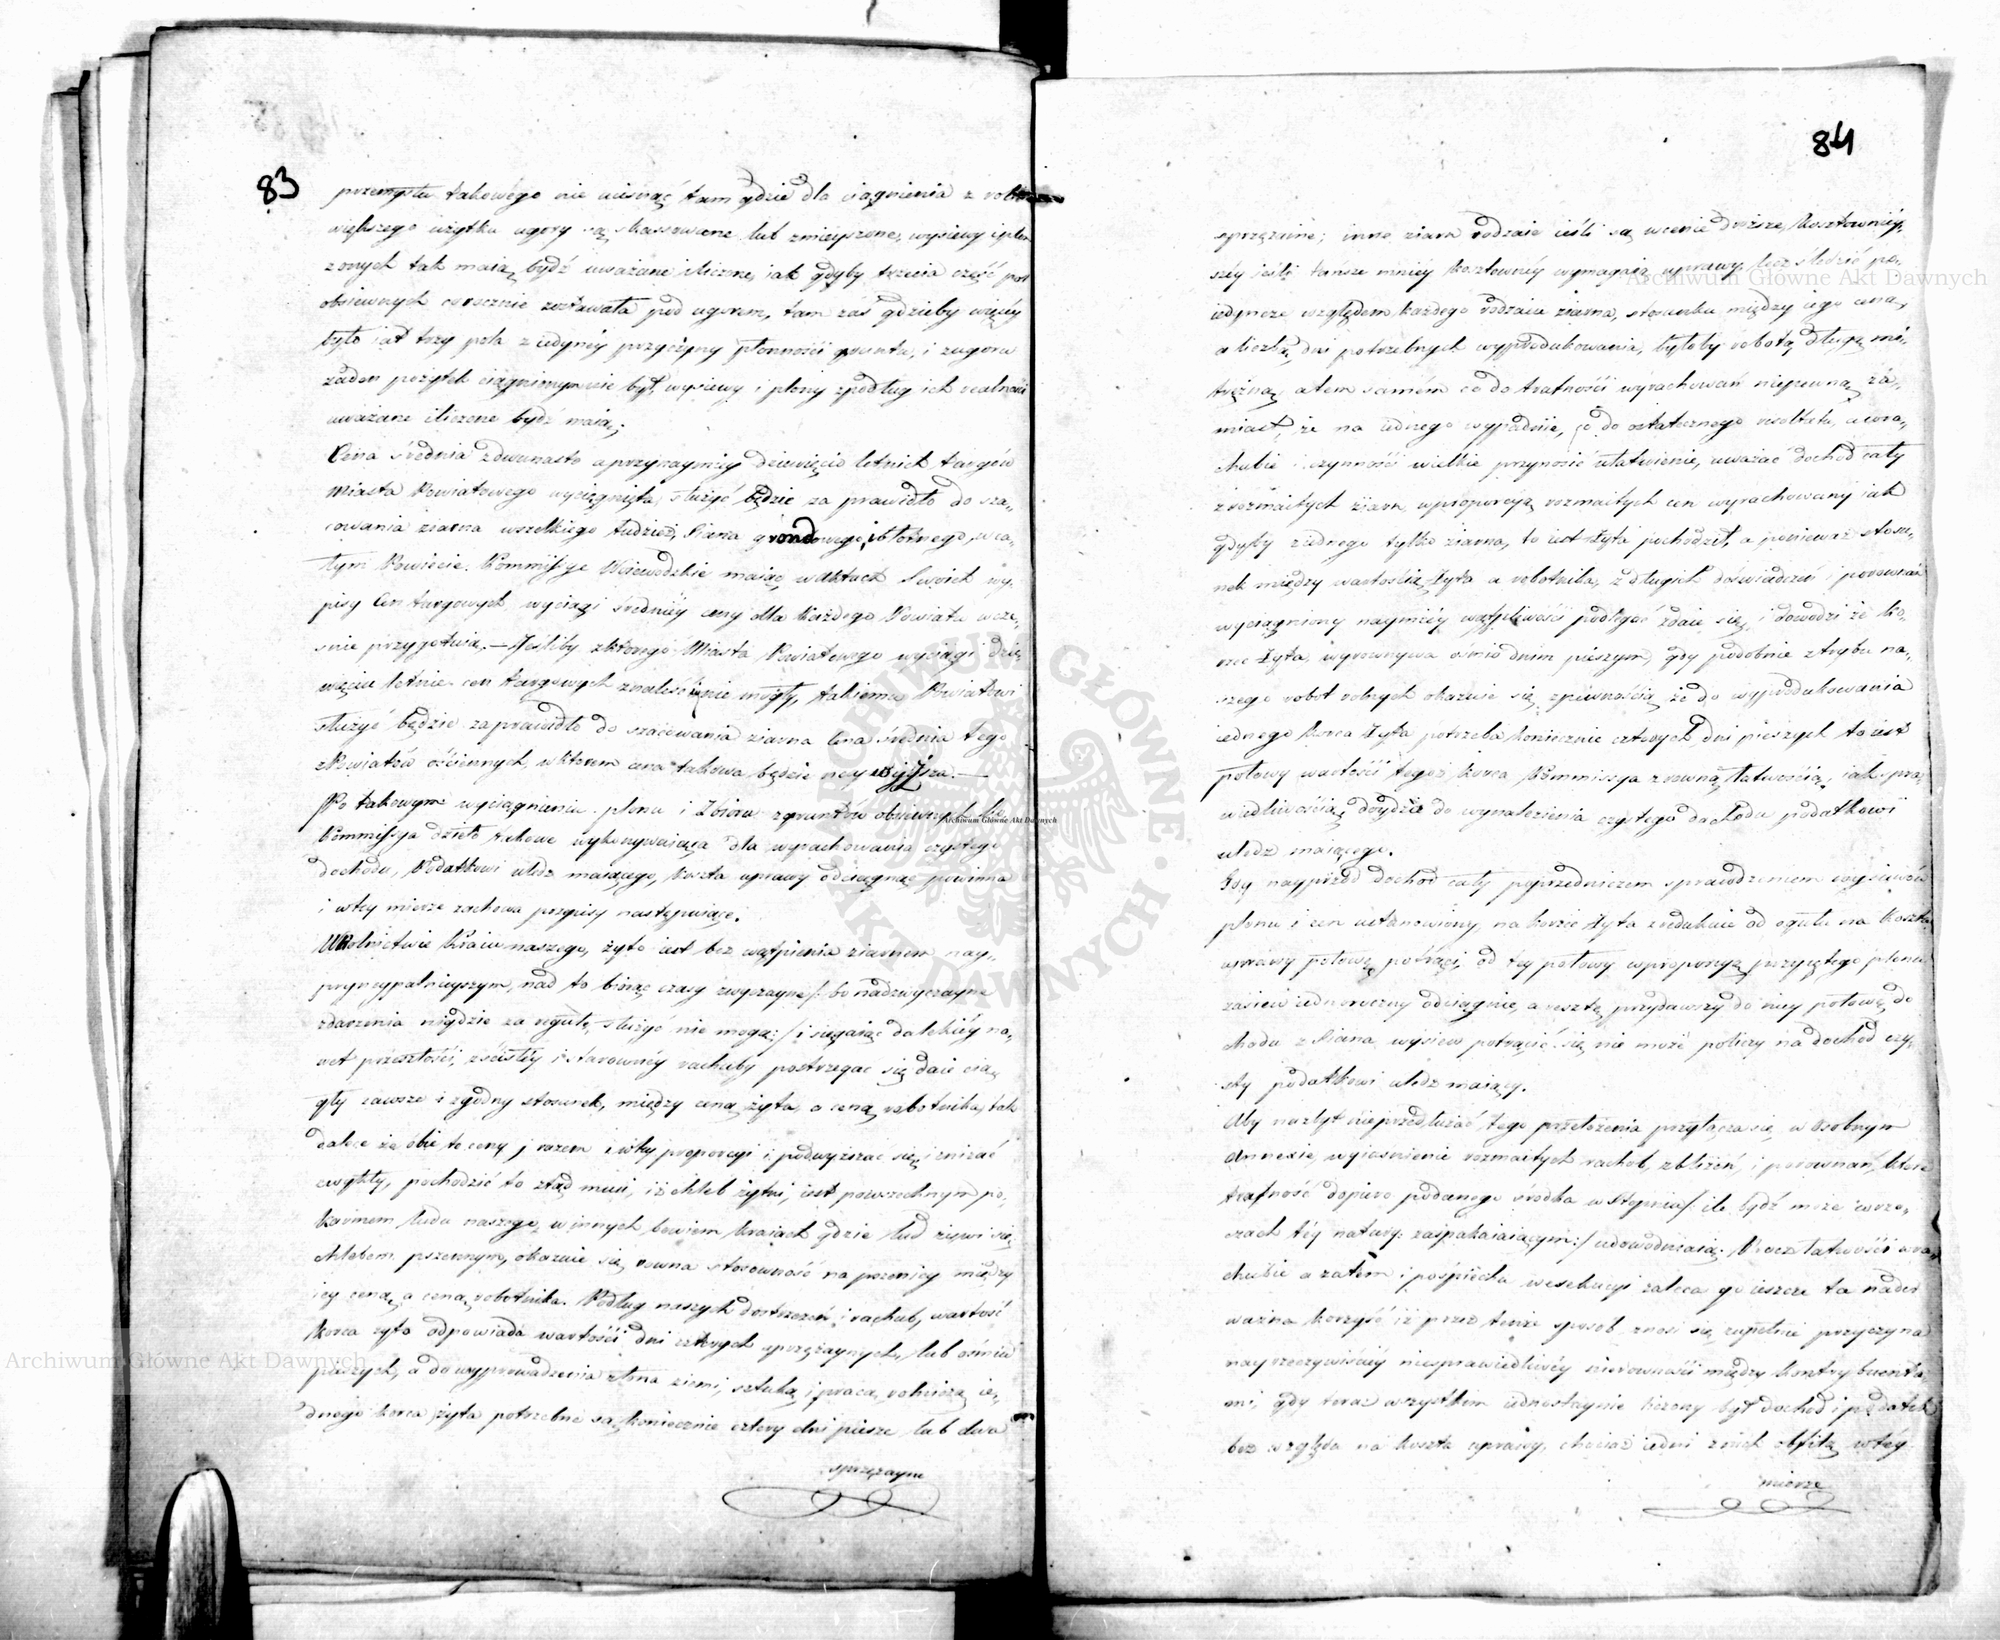 83
przemysłu takowego nie uisnąć tam gdzie dla ciągnienia z
większego użytku ugory są skassowane lub zmieyszone, wysiewy i plen
zonych tak maią bydź uważane i liczone, iak gdyby trzecia część
obsiewnych corocznie zostawała pod ugorem, tam zaś gdzieby więcéy
było iak trzy pola z iedynéy przyczyny płonności gruntu, i z ugoru
żaden pożytek ciągnionym nie był, wysiewy i plony podług ich realności
uważane i liczone bydź maią.
Cena średnia z dwunasto a przynaymniéy dziewięcio letnich targów
Miasta Powiatowego wyciągnięta, służyć będzie za prawidło do sza-
cowania ziarna wszelkiego tudzież Siana grondowego, i błotnego, w ca-
łym Powiecie. Kommissye Woiewodzkie maiąc w aktach swoich wy-
pisy Cen targowych, wyciągi średniéy ceny dla każdego Powiatu wcze-
snie przygotuią. — Jeśliby z którego Miasta Powiatowego wyciągi dzie-
więcio letnie cen targowych znaleść się nie mogły, takiemu Powiatowi
służyć będzie za prawidło do szacowania ziarna Cena średnia tego
z Powiatów ościennych, w którem cena takowa będzie nay wyższa. —
Po takowym wyciągnieniu plonu i Zbioru z gruntów obsiewnych
Kommissya dzieło takowe wykonywaiąca dla wyrachowania czystego
dochodu, Podatkowi uledz maiącego, koszta uprawy odciągnąć powinna
i w tey mierze zachowa przepisy następuiące.
W Rolnictwie Kraiu naszego, żyto iest bez wątpienia ziarnem nay-
pryncypalnieyszym, nad to biorąc czasy zwyczayne /: bo nadzwyczayne
zdarzenia nigdzie za regułę służyć nie mogą :/ i sięgaiąc dalekiéy na-
wet przeszłości, z ścisłéy i starownéy rachuby postrzegać się daie cią-
gły zawsze i zgodny stosunek, między ceną żyta, a ceną robotnika, tak
dalece że obie te ceny, razem i w téy proporcyi i podwyższać się i zniżać
zwykły, pochodzić to ztąd musi, iż chleb żytni, iest powszechnym po-
karmem ludu naszego, w innych bowiem kraiach gdzie lud żywi się
chlebem pszennym, okazuie się równa stosowność na pszenicy między
iey ceną a ceną robotnika. Podług naszych dostrzeżeń i rachub, wartość
korca żyta odpowiada wartości dni czterych sprzężaynych, lub ośmiu
pieszych, a do wyprowadzenia z łona ziemi, sztuką i pracą rolniczą ie-
dnego korca żyta potrzebne są koniecznie cztery dni piesze lub dwa
sprzężayne
84
sprzężaine; inne ziarn rodzaie ieśli są w cenie droższe, kosztowniéy-
széy ieśli tańsze mniéy kosztownéy wymagaią uprawy, lecz śledzić po-
iedyncze względem każdego rodzaiu ziarna, stosunku między iego ceną
a liczbą dni potrzebnych wyprodukowania, byłoby robotą długą mi-
trężną, a tem samém co do trafności wyrachowań niepewną, za-
miast, że na iednego wypadnie, co do ostatecznego resultatu, a w ra-
chubie i czynności wielkie przynosić ułatwienie, uważać dochod cały
z rozmaitych ziarn, w proporcyą rozmaitych cen wyrachowany iak
gdyby z iednego tylko ziarna, to iest żyta pochodził, a ponieważ stosu-
nek między wartością żyta a robotnika, z długich doświadczeń i porownań
wyciągniony naymniéy wątpliwości podległ zdaie się i dowodzi że ko-
rzec żyta, wyrownywa osmio dniom pieszym, gdy podobnie z trybu na-
szego robot rolnych okazuie się z pewnością, że do wyprodukowania
iednego korca żyta potrzeba koniecznie czterych dni pieszych to iest
połowy wartości tegoż korca Kommissya z równą łatwością, iak spra-
wiedliwością, doydzie do wynalezienia czystego dochodu podatkowi
uledz maiącego.
Gdy nayprzód dochod cały poprzedniczem sprawdzeniem wysiewów
plonu i cen ustanowiony na korce żyta zredukuie od ogułu na koszta
uprawy połowę potrąci, od tey połowy w proporcyą przyiętego plonu
zasiew iednoroczny odciągnie, a resztę przydawszy do niey połowę do-
chodu z Siana, wysiew potrącić się nie może policzy na dochod czy-
sty podatkowi uledz maiący.
Aby nazbyt nie przedłużać tego przełożenia przyłącza się w osobnym
Annexie wyiaśnienie rozmaitych rachub, zbliżeń, i porownań, które
trafność dopiero podanego środka w stopniu /: ile bydź może w rze-
czach téy natury: zaspakaiaiącym :/ udowodniaią. Prócz łatwości w ra-
chubie a zatém i pośpiechu w exekucyi zaleca go ieszcze ta nader
ważna korzyść iż przez tenże sposob znosi się zupełnie przyczyna
nayrzeczywistszéy niesprawiedliwéy nierowności między kontrybuenta-
mi, gdy teraz wszystkim iednostaynie liczony był dochod i podatek
bez względu na koszta uprawy, chociaż iedni z nich obfitą w téy
mierze
Archiwum Główne Akt Dawnych
Archiwum Główne Akt Dawnych
Archiwum Główne Akt Dawnych
ARCHIWUM GŁÓWNE • AKT DAWNYCH •